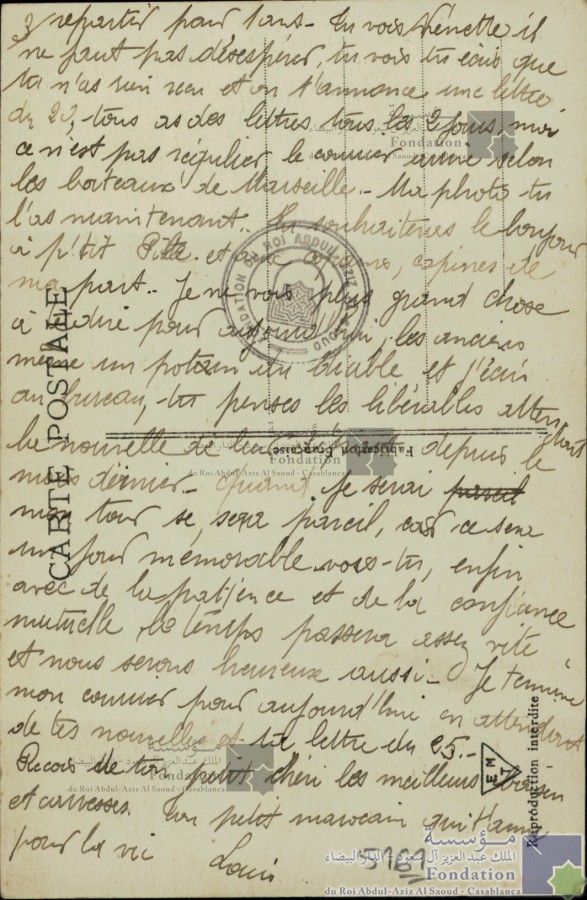 3 repartir pour 1 ans - Tu vois Ninette il
ne faut pas désespérer, tu vois tu écris que
tu n'as rien reçu et on t'annonce une lettre
du 20, tous as des lettres tous les 2 jours, moi
ce n'est pas régulier le courrier arrive selon
les bateaux de Marseille. - Ma photo tu
l'as maintenant. Tu souhaiteras le bonjour
à p'tit et copines de
ma part. - Je ne vois plus grand chose
à dire pour aujourd'hui, les anciens
mène un potin du diable et j'écris
au bureau, tu penses les libérables attendent
la nouvelle de leur depuis le
mois dernier - Quand je serai
mon tour se, sera pareil, car ce sera
un jour mémorable vois-tu, enfin
avec de la patience et de la confiance
mutuelle, le temps passera assez vite
et nous serons heureux aussi - Je termine
mon courrier pour aujourd'hui en attendant
de tes nouvelles et ta lettre du 25. -
Reçois de ton petit chéri les meilleurs baisers
et caresses. Ton petit marocain qui t'aime
pour la vie Louis
5989
CARTE POSTALE
Fabrication Française
Reproduction Interdite
EMT
FONDATION DU ROI ABDUL AZIZ AL SAOUD
مؤسسة
الملك عبد العزيز آل سعود - الدار البيضاء
Fondation
du Roi Abdul-Aziz Al Saoud - Casablanca